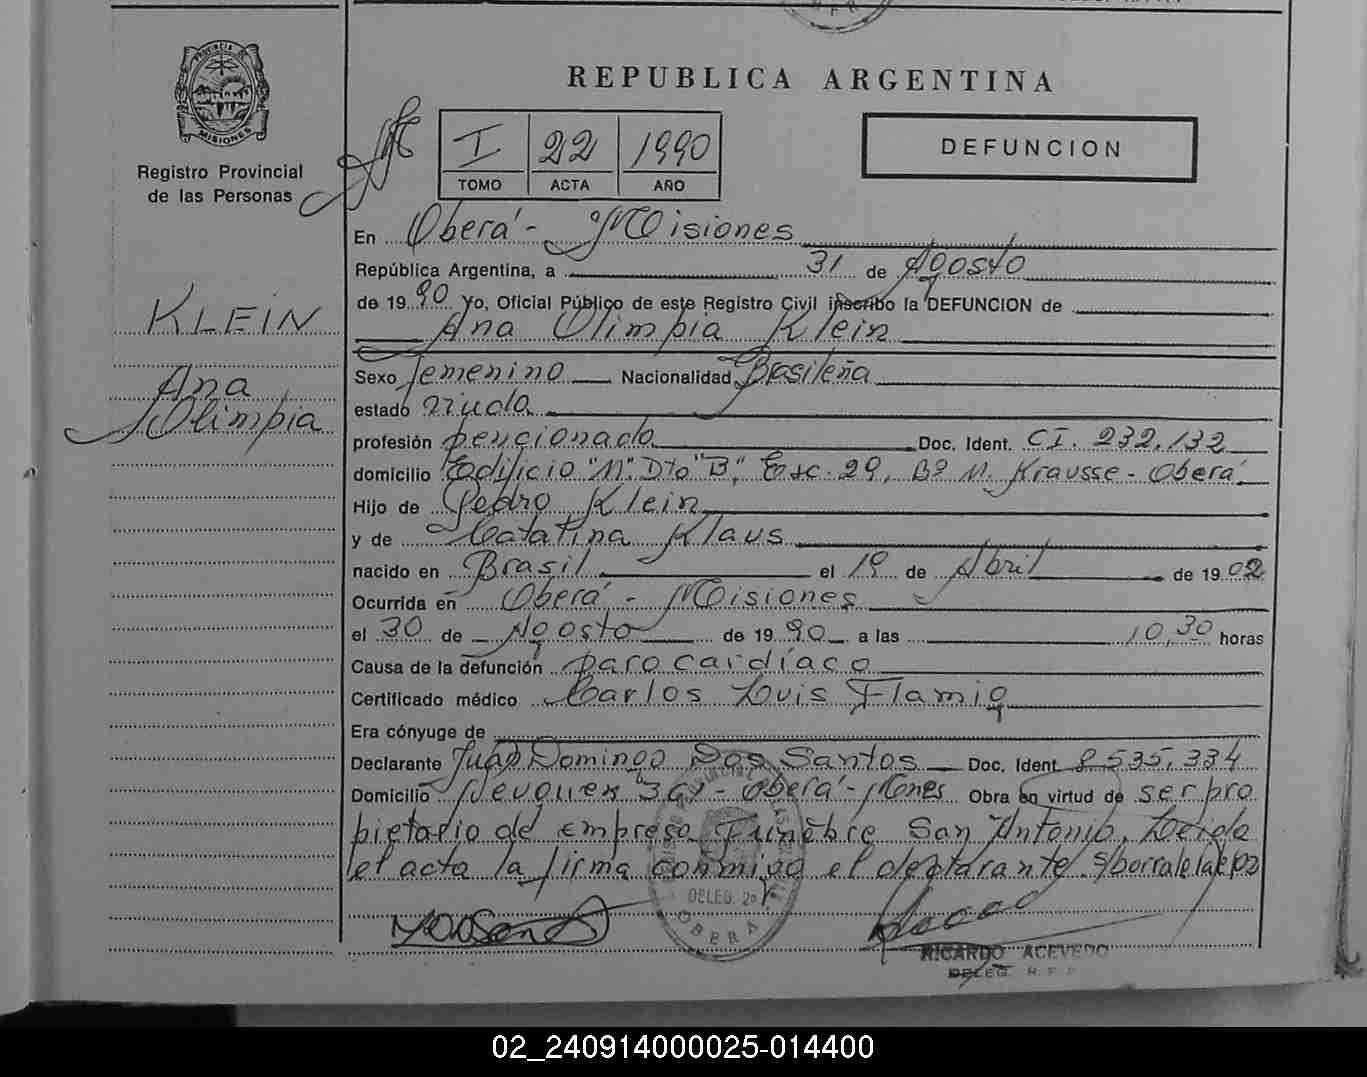 REPUBLICA ARGENTINA
PROVINCIA DE
MISIONES
Registro Provincial
de las Personas
I 22 1990
TOMO ACTA AÑO
DEFUNCION
En Oberá - Misiones
República Argentina, a 31 de Agosto
de 1990 Yo, Oficial Público de este Registro Civil inscribo la DEFUNCION de
Ana Olimpia Klein
KLEIN
Ana
Olimpia
Sexo femenino Nacionalidad Brasileña
estado viuda
profesión pencionada Doc. Ident. CI. 232.132
domicilio Edificio "N". Dto "B", Esc. 29, Bº N. Krausse - Oberá
Hijo de Pedro Klein
y de Catatina Klaus
nacido en Brasil el 19 de Abril de 1902
Ocurrida en Oberá - Misiones
el 30 de Agosto de 1990 a las 10,30 horas
Causa de la defunción paro cardíaco
Certificado médico Carlos Luis Flamig
Era cónyuge de
Declarante Juan Domingo Dos Santos Doc. Ident. 8.535.334
Domicilio Neuquen 361 - Oberá - Mnes Obra en virtud de ser pro
pietario de empresa Funebre San Antonio. Leida
el acta la firma conmigo el declarante.
DELEG.
OBERA
RICARDO ACEVEDO
DELEG. R.P.P
02_240914000025-014400